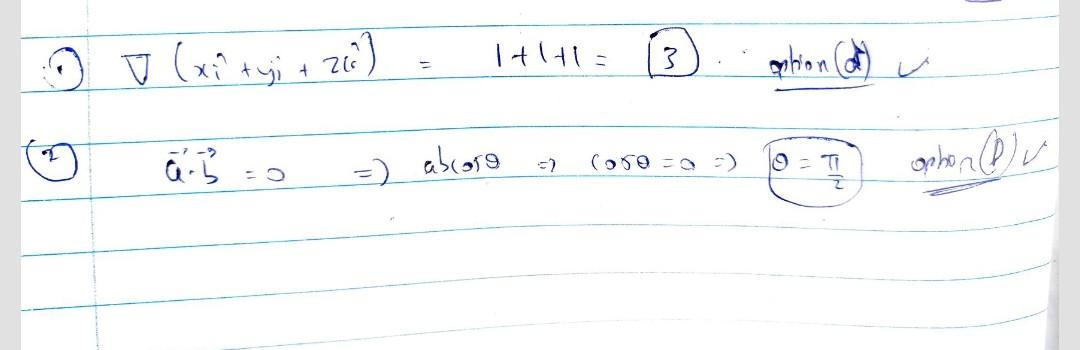 ① ∇ (xî + yj + zk̂) = 1+1+1 = 3 . option (d) ✓
② a⃗·b⃗ = 0 => abcosθ => cosθ = 0 => θ = π/2 option (b) ✓